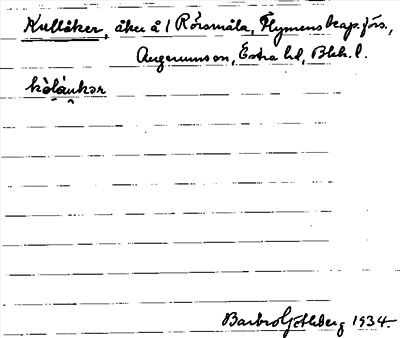 Kullåker, åker å 1 Rörsmåla, Flymens kap. förs.,
Augerums sn, Östra hd, Blek. l.
kò̤lá̤ṷkər
Barbro Götlberg 1934.